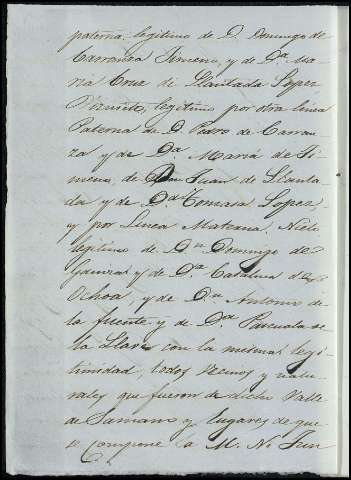 paterna, legitimo de D. Domingo de
Carranza Jimeno, y de Dª Ma-
ria Cruz de Llantada Lopez
legitimo por otra linea
Paterna de D. Pedro de Carran-
za y de Dª Maria de Ji-
meno, de Don Juan de Llanta-
da y de Dª Tomasa Lopez,
y por Linea Materna. Nieto
legitimo de Dn Domingo de
y de Dª Catalina de
Ochoa, y de Dn Antonio de
la fuente y de Dª Pascuala de
la Llave con la misma legi-
timidad, todos vecinos y natu-
rales que fueron de dicho Valle
de Samano y lugares de que
se compone á M. N.